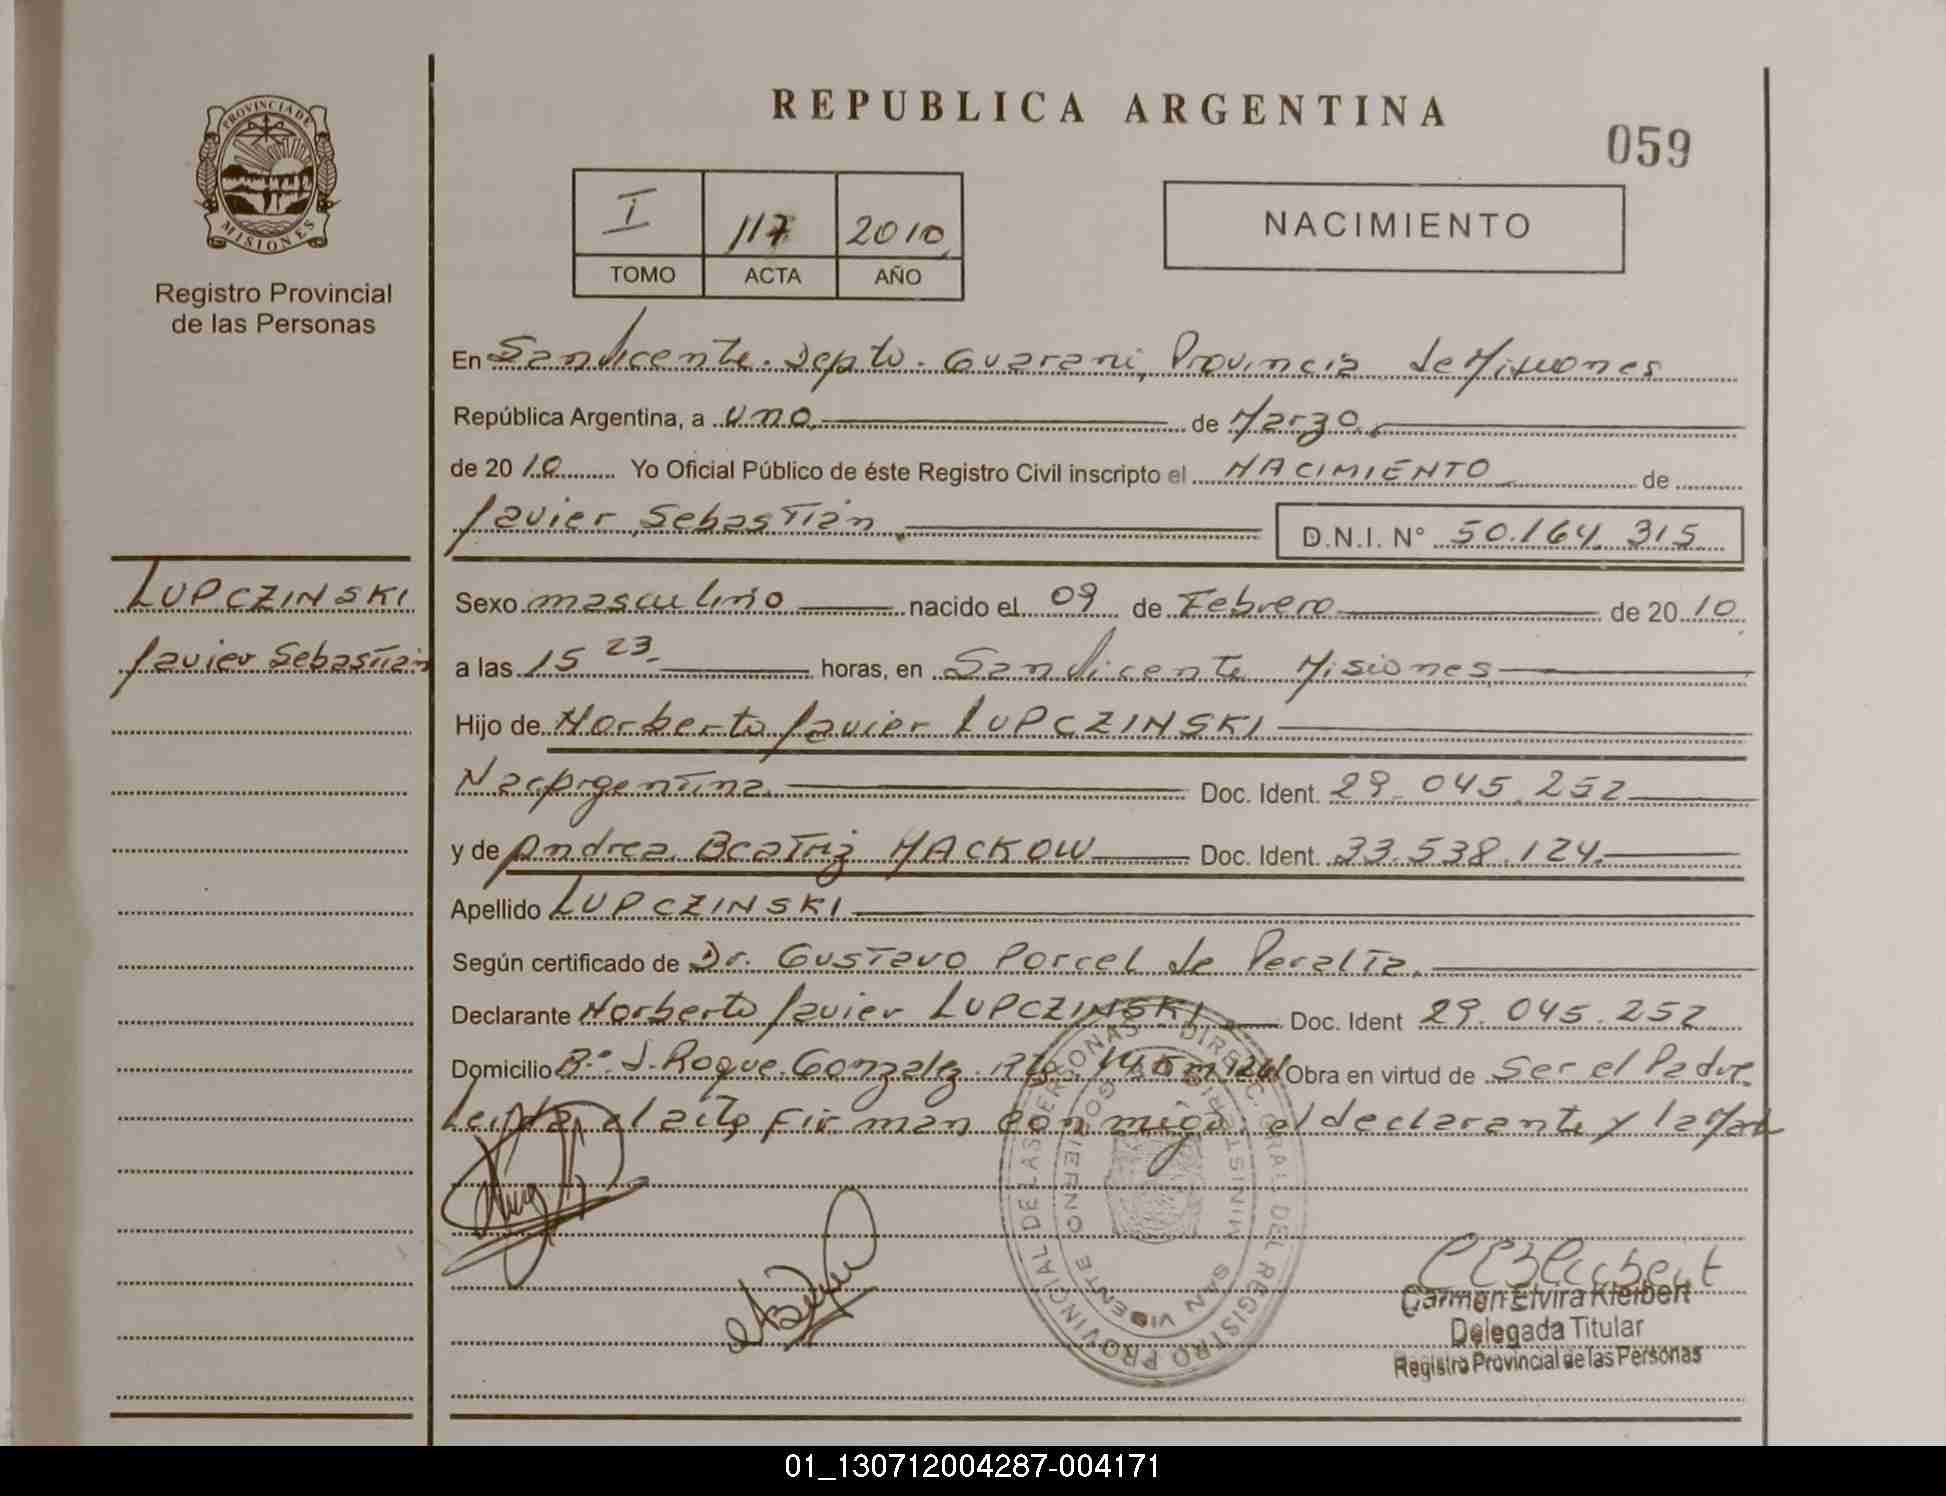 REPUBLICA ARGENTINA
059
PROVINCIA DE
MISIONES
Registro Provincial
de las Personas
I 117 2010
TOMO ACTA AÑO
NACIMIENTO
En San Vicente. Depto. Guarani, Provincia de Misiones
República Argentina, a uno de Marzo
de 2010 Yo Oficial Público de éste Registro Civil inscripto el NACIMIENTO de
Javier Sebastián D.N.I. N° 50.164.315
LUPCZINSKI
Javier Sebastián
Sexo masculino nacido el 09 de Febrero de 2010
a las 15 23 horas, en San Vicente Misiones
Hijo de Norberto Javier LUPCZINSKI
Nac Argentina Doc. Ident. 29.045.252
y de Andrea Beatriz HACKOW Doc. Ident. 33.538.124.
Apellido LUPCZINSKI
Según certificado de Dr. Gustavo Porcel de Peralta.
Declarante Norberto Javier LUPCZINSKI Doc. Ident 29.045.252
Domicilio B°. S. Roque Gonzalez Rta. 14 Km Obra en virtud de Ser el Padre
Leida el acta firman conmigo el declarante y la Mad
DIREC. GRAL. DEL REGISTRO PROVINCIAL DE LAS PERSONAS
MINISTERIO GOBIERNO
SAN VICENTE
Carmen Elvira Kleibert
Delegada Titular
Registro Provincial de las Personas
01_130712004287-004171